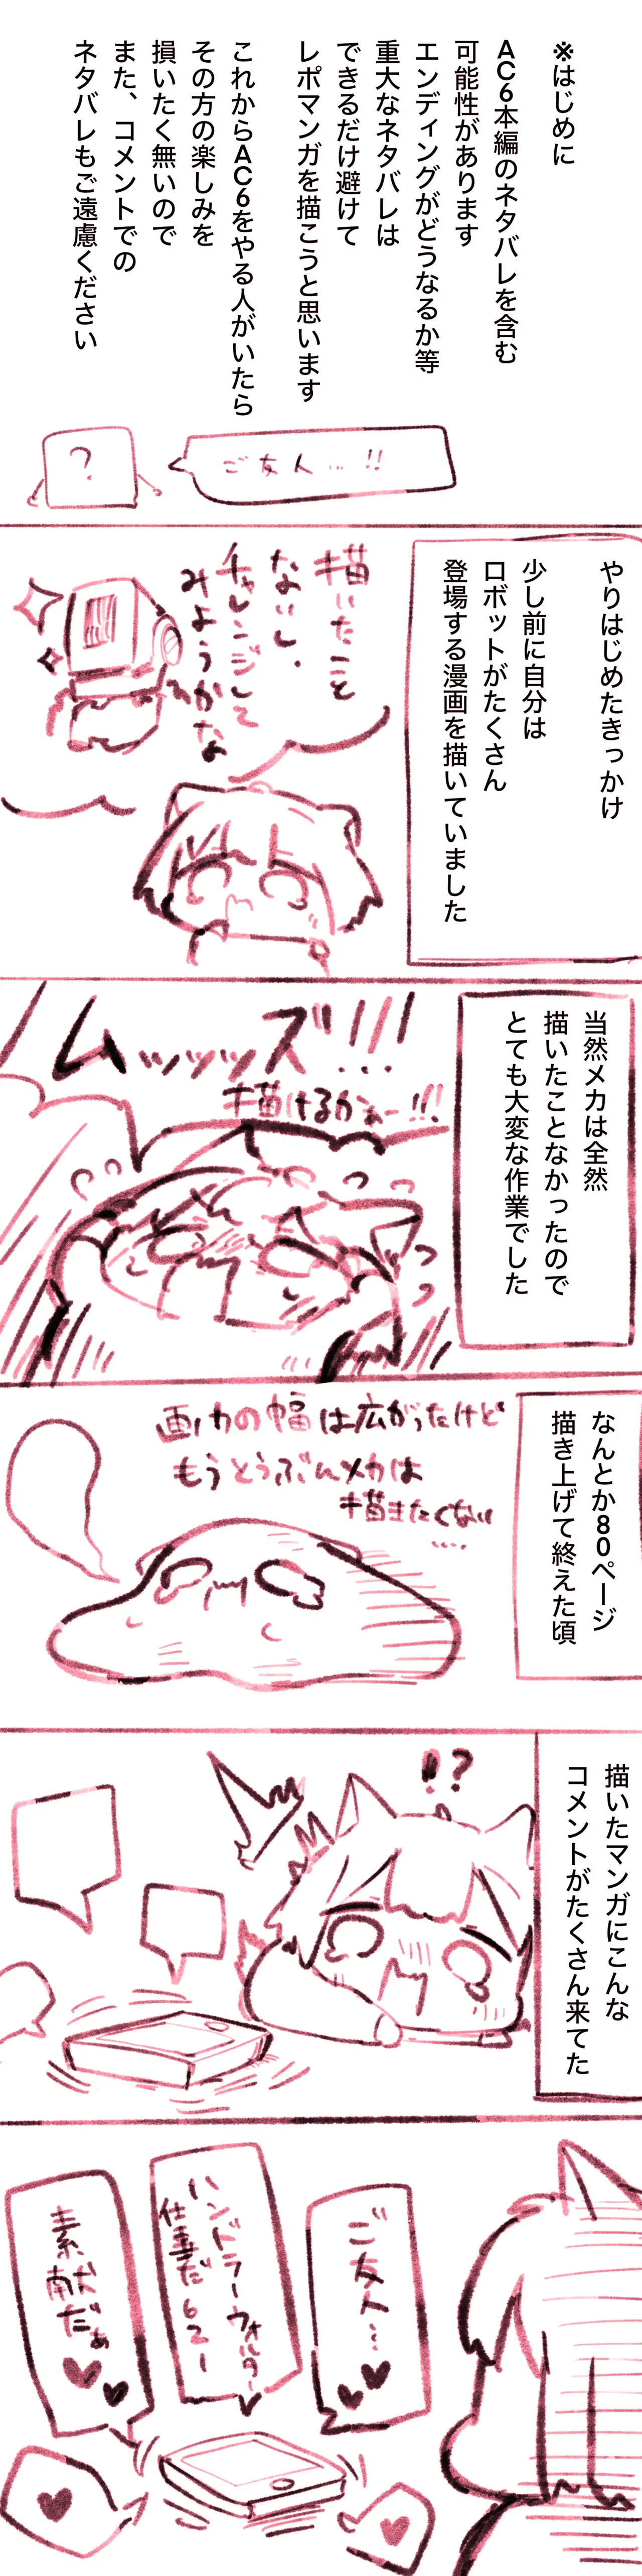 ※はじめに
AC6本編のネタバレを含む
可能性があります
エンディングがどうなるか等
重大なネタバレは
できるだけ避けて
レポマンガを描こうと思います
これからAC6をやる人がいたら
その方の楽しみを
損いたく無いので
また、コメントでの
ネタバレもご遠慮ください
ご友人…!!
?
やりはじめたきっかけ
少し前に自分は
ロボットがたくさん
登場する漫画を描いていました
描いたこと
ないし、
チャレンジして
みようかな
当然メカは全然
描いたことなかったので
とても大変な作業でした
ムッッッズ!!!…
描けるかぁー!!!
なんとか80ページ
描き上げて終えた頃
画力の幅は広がったけど
もうとうぶんメカは
描きたくない
….
描いたマンガにこんな
コメントがたくさん来てた
!?
ご友人…
ハンドラーウォルター
仕事だ621
素敵だぁ